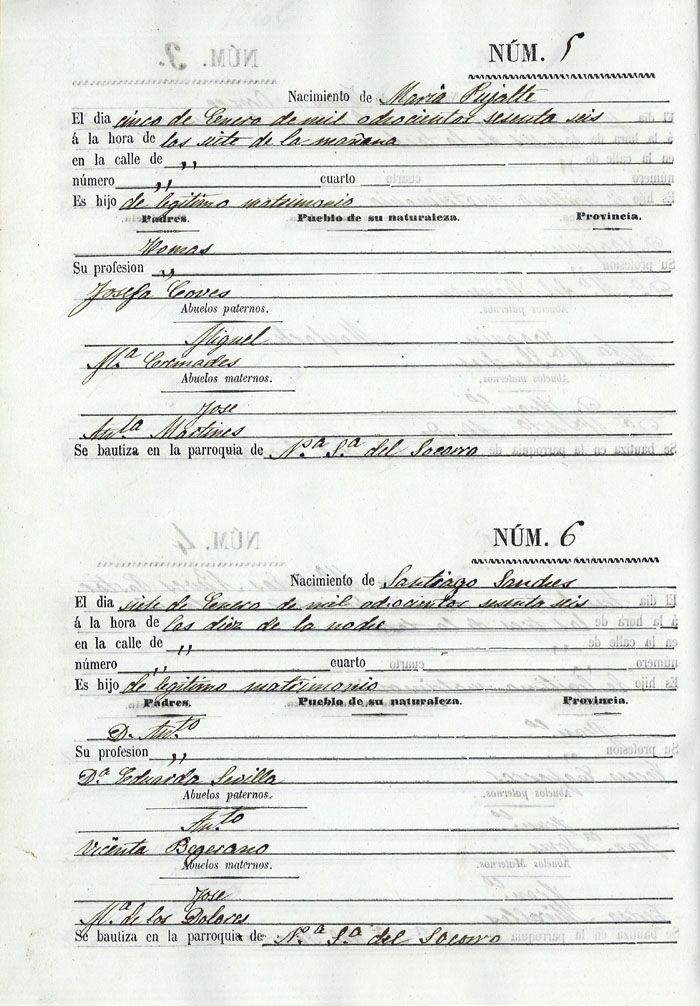 NÚM. 5
Nacimiento de Maria Pujalte
El dia cinco de Enero de mil odocientos sesenta seis
á la hora de las siete de la mañana
en la calle de ,,
número ,, cuarto
Es hijo de legitimo matrimonio
Padres. Pueblo de su naturaleza. Provincia.
Tomas
Su profesion ,,
Josefa Coves
Abuelos paternos.
Miguel
M.ª Cremades
Abuelos maternos.
Jose
Ant.ª Martines
Se bautiza en la parroquia de N.ª S.ª del Socorro
NÚM. 6
Nacimiento de Santiago
El dia siete de Enero de mil odocientos sesenta seis
á la hora de las diez de la noche
en la calle de ,,
número ,, cuarto
Es hijo de legitimo matrimonio
Padres. Pueblo de su naturaleza. Provincia.
D. Ant.º
Su profesion ,,
D.ª Eduarda Sevilla
Abuelos paternos.
Ant.º
Vicenta Begerano
Abuelos maternos.
Jose
M.ª de los Dolores
Se bautiza en la parroquia de N.ª S.ª del Socorro